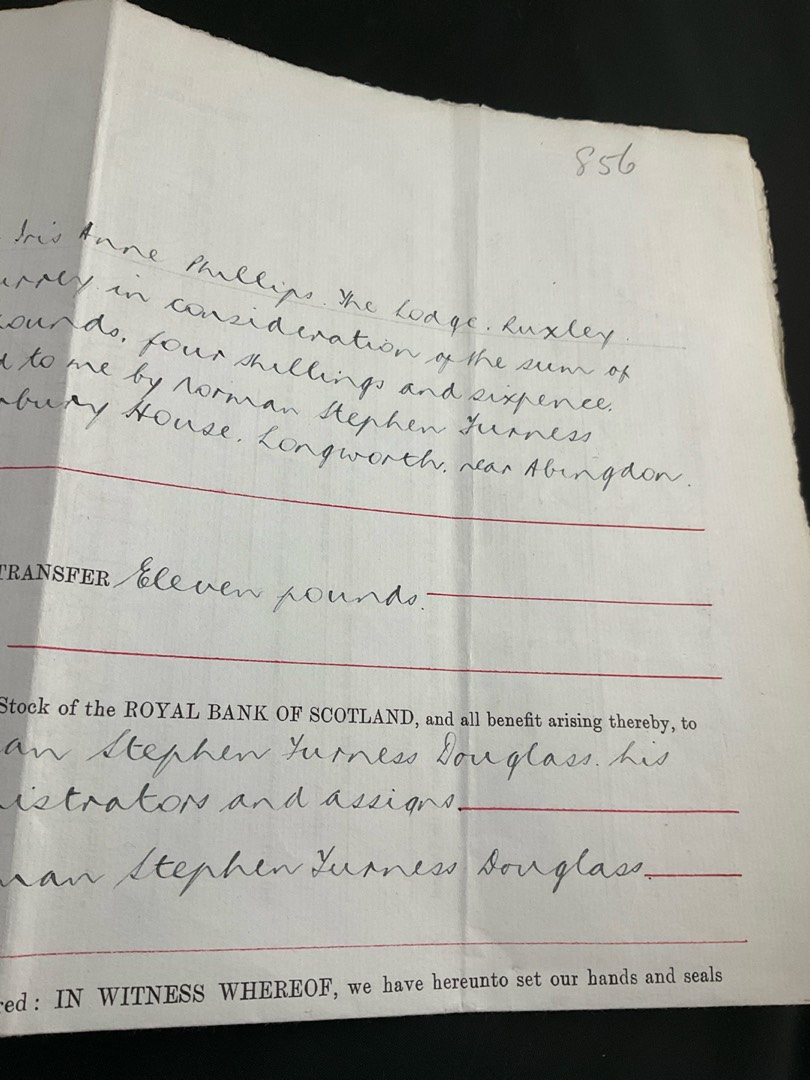 856
Iris Anne Phillips. The Lodge. Ruxley.
urrey in consideration of the sum of
ounds, four shillings and sixpence.
d to me by Norman Stephen Furness
bury House. Longworth. near Abingdon.
TRANSFER Eleven pounds.
Stock of the ROYAL BANK OF SCOTLAND, and all benefit arising thereby, to
an Stephen Furness Douglass. his
istrators and assigns.
man Stephen Furness Douglass.
red: IN WITNESS WHEREOF, we have hereunto set our hands and seals